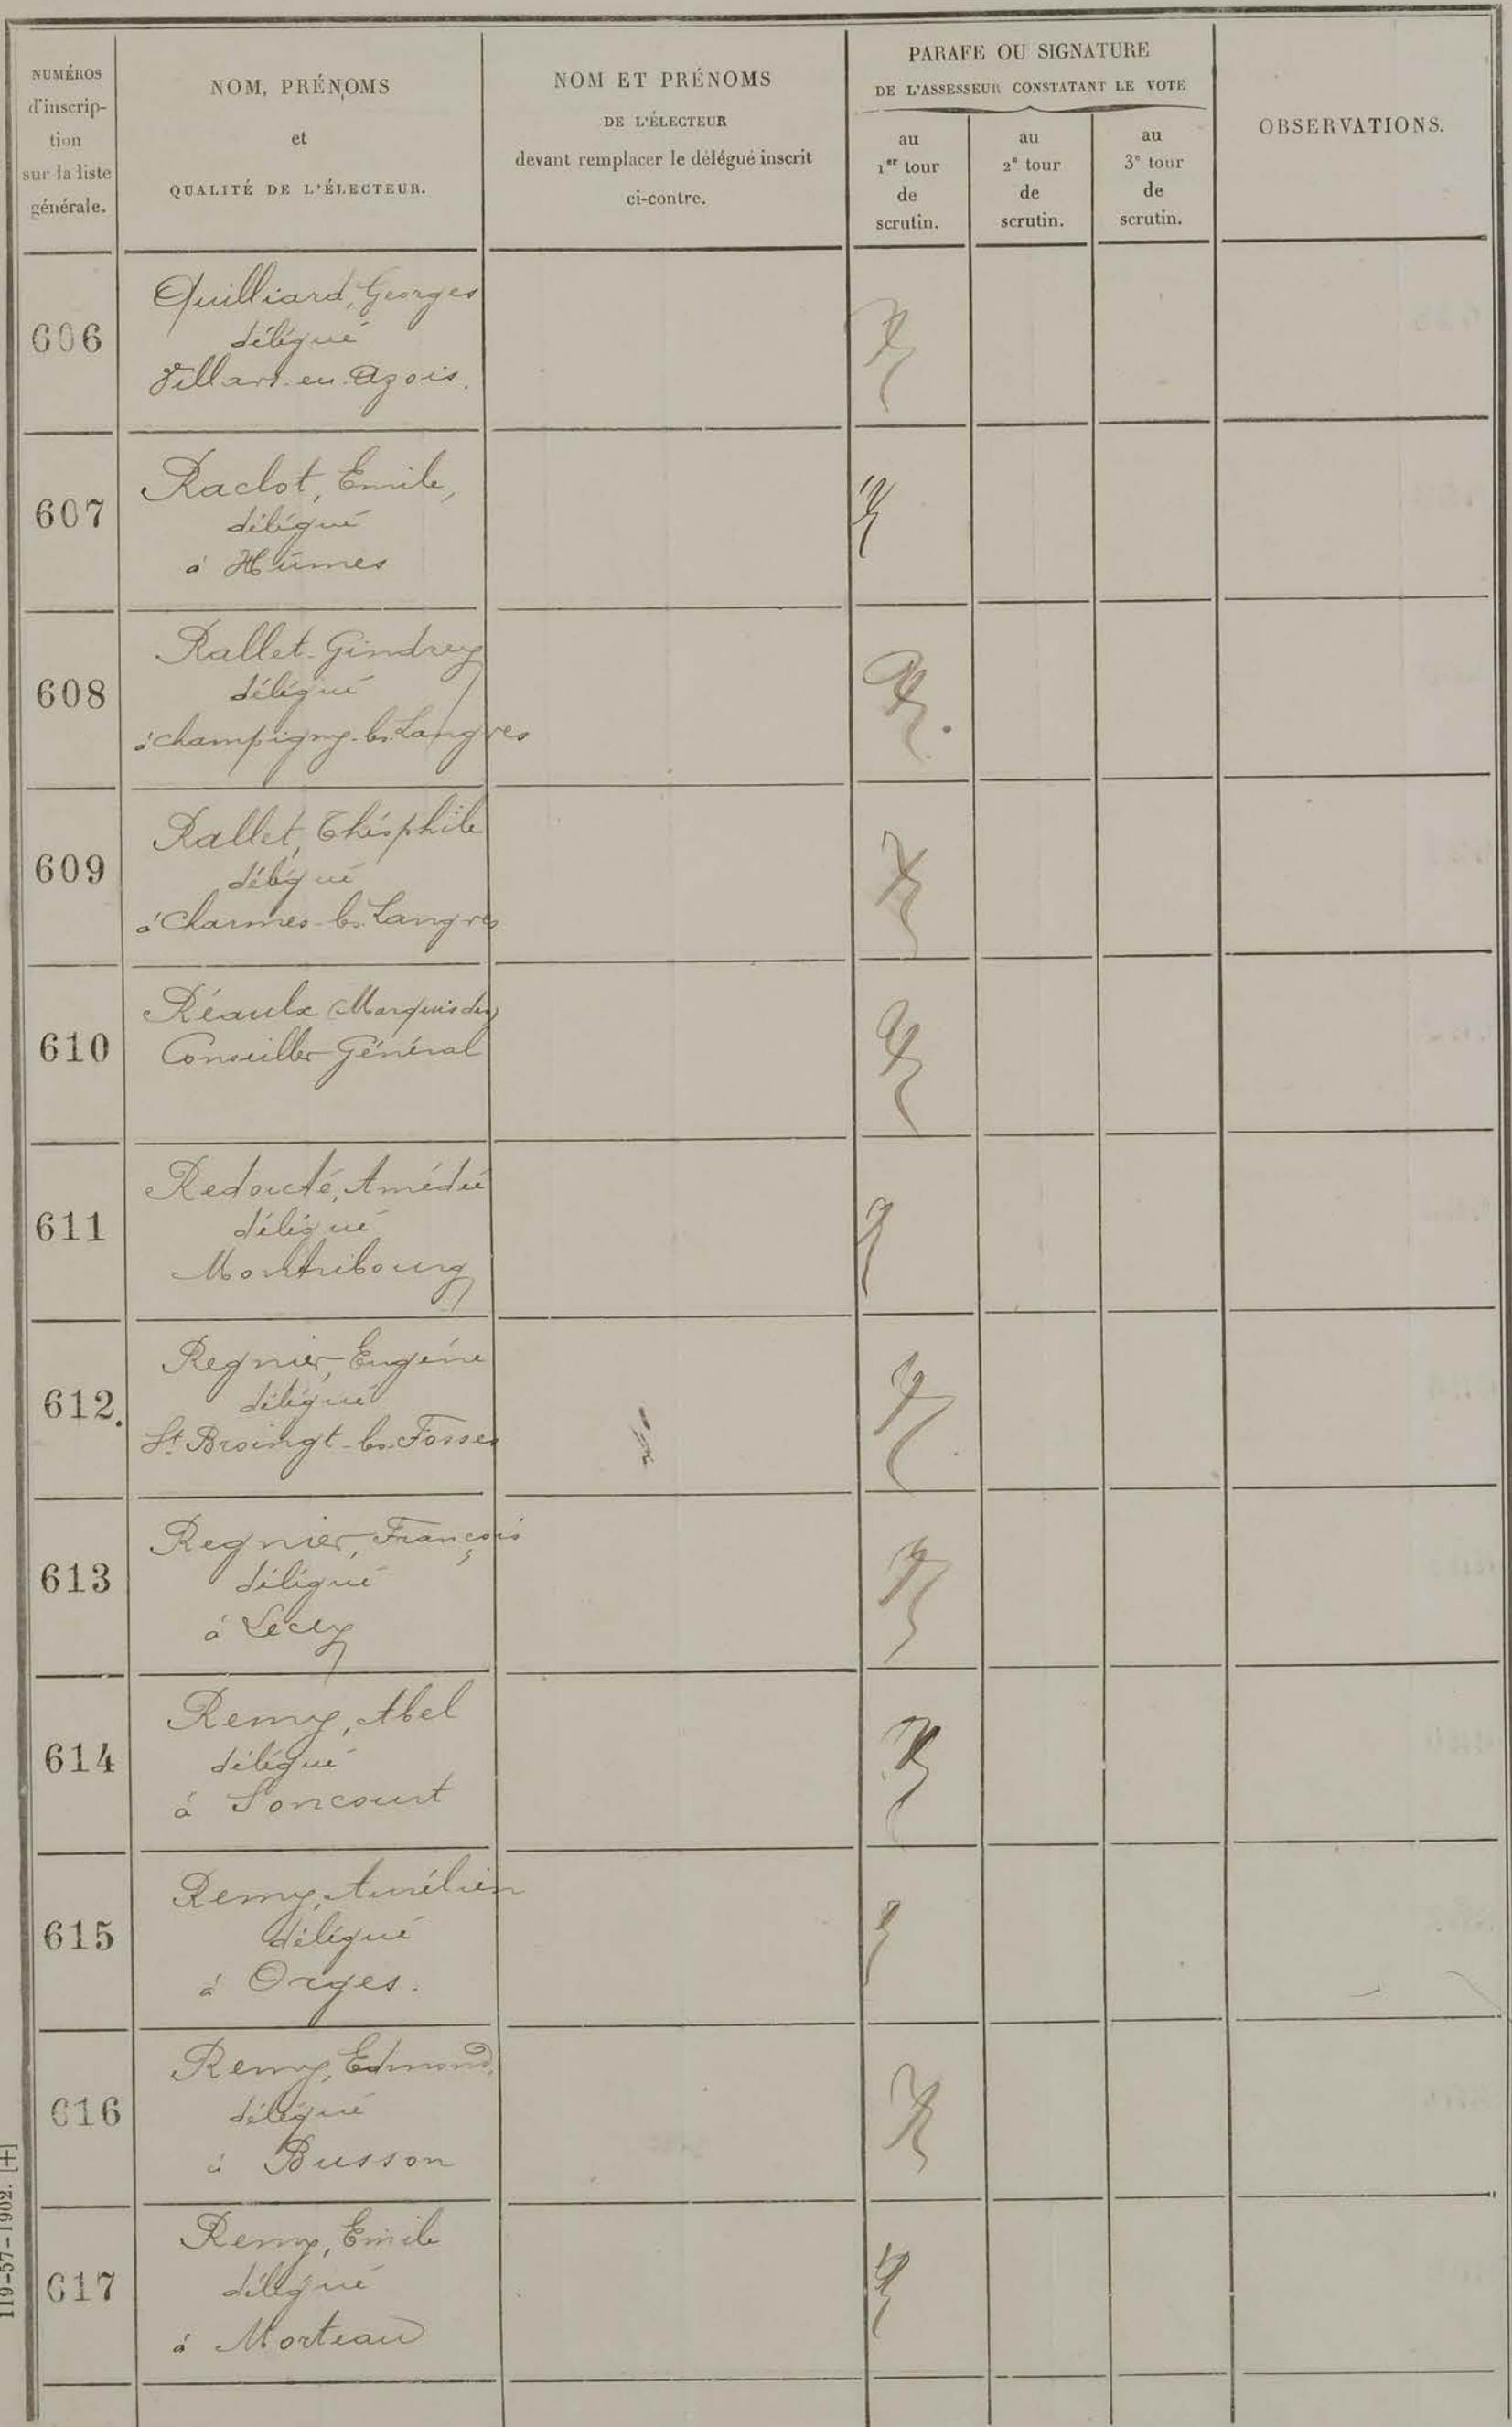 NUMÉROS
d'inscrip-
tion
sur la liste
générale.
NOM, PRÉNOMS
et
QUALITÉ DE L'ÉLECTEUR.
NOM ET PRÉNOMS
DE L'ÉLECTEUR
devant remplacer le délégué inscrit
ci-contre.
PARAFE OU SIGNATURE
DE L'ASSESSEUR CONSTATANT LE VOTE
au
1er tour
de
scrutin.
au
2e tour
de
scrutin.
au
3e tour
de
scrutin.
OBSERVATIONS.
606
Quilliard, Georges
délégué
Villars-en-Azois.
607
Raclot, Emile,
délégué
à Hûmes
608
Rallet-Gindrey
délégué
à champigny-les-Langres
609
Rallet, Théophile
délégué
à Charmes-les-Langres
610
Réaulx (Marquis des)
Conseiller Général
611
Redouté, Amédée
délégué
Montribourg
612.
Regnier, Eugène
délégué
St Broingt-les-Fosses
613
Regnier, François
délégué
à Lecey
614
Remy, Abel
délégué
à Soncourt
615
Remy, Aurélien
délégué
à Orges.
616
Remy, Edmond,
délégué
à Busson
617
Remy, Emile
délégué
à Morteau
119-57-1902. [+]